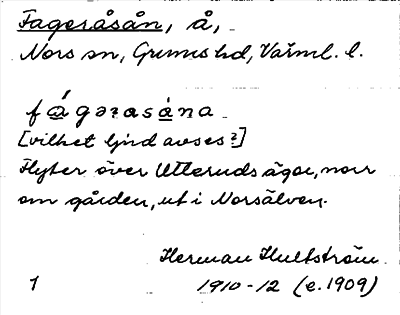 Fageråsån, å,
Nors sn, Grums hd, Värml. l.
fágərasána
[vilket ljud avses?]
Flyter över Utteruds ägor, norr
om gården, ut i Norsälven.
Herman Hultström
1 1910-12 (e. 1909)